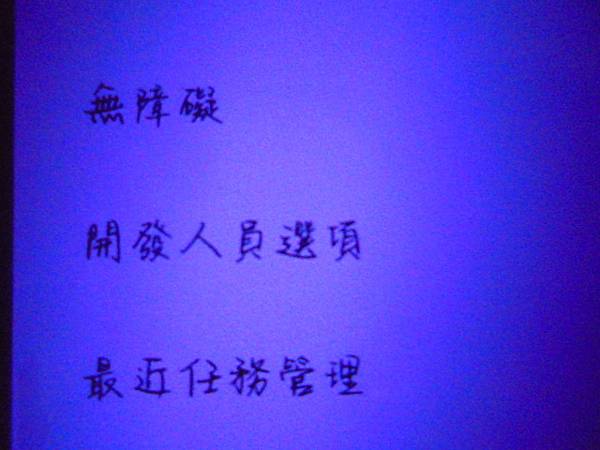 無障礙
開發人員選項
最近任務管理